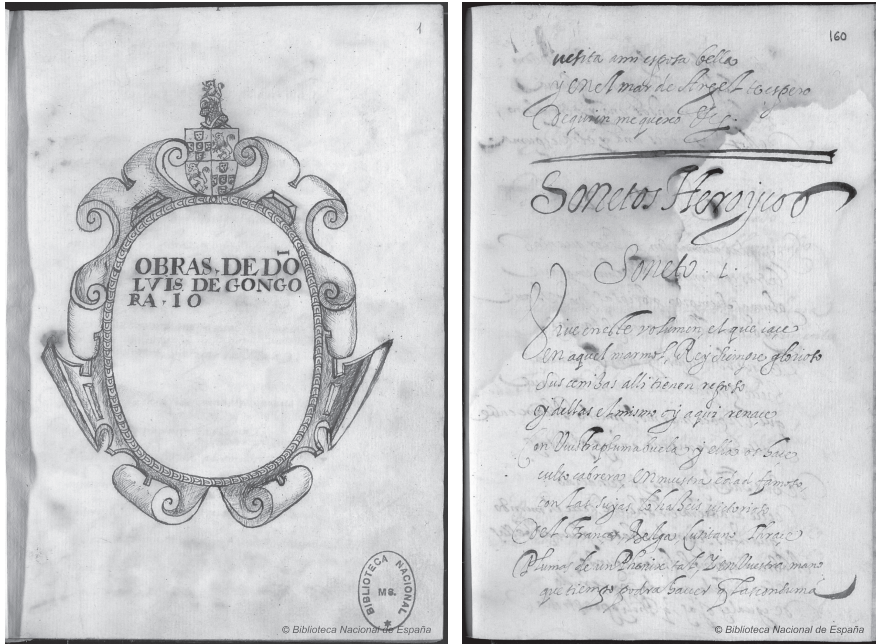 1
OBRAS DE DÕ
I
LVIS DE GONGO
RA · I O
BIBLIOTECA NACIONAL
MS.
© Biblioteca Nacional de España
160
vesita ami esposa bella
y en el mar de Argel te espero
Sonetos Heroycos
Soneto 1.
Vive en este volumen el que iace
en aquel marmol, Rey siempre glorioso
sus cenibas alli tienen reposo
y dellas el mismo oy aqui renace
con vuestra pluma buela, y ella os hace
culto cabrera, en nuestra edad famoso,
con las suyas
del Frances, Belga, Lusitano, Thrace
Plumas de un Phenix tal, y en vuestra mano
que tiempo podra haver q las consuma
© Biblioteca Nacional de España